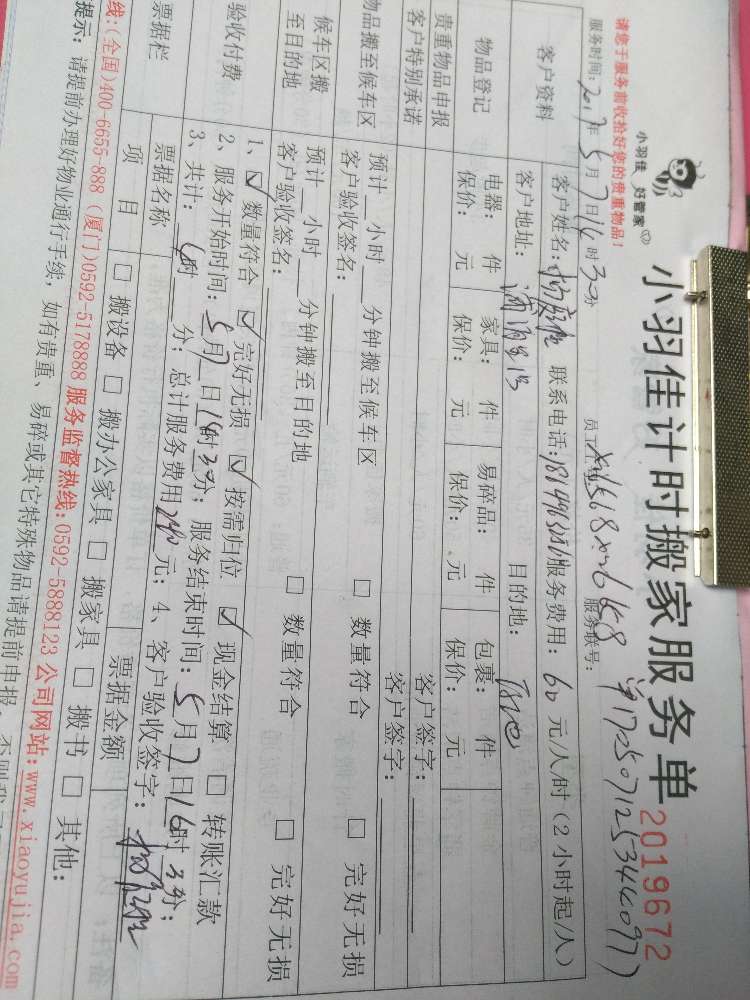 小羽佳 好管家
小羽佳计时搬家服务单
2019672
请您于服务前收拾好您的贵重物品！
服务时间：2017年5月7日14时30分 服务联号：
客户资料
客户姓名： 联系电话： 服务费用：60元/人/时（2小时起/人）
客户地址： 目的地：
物品登记
电器： 件 家具： 件 易碎品： 件 包裹： 件
保价： 元 保价： 元 保价： 元 保价： 元
贵重物品申报 客户签字：
客户特别承诺 客户签字：
物品搬至候车区
预计__小时__分钟搬至候车区 □ 数量符合 □ 完好无损
客户验收签名：
候车区搬
至目的地
预计__小时__分钟搬至目的地 □ 数量符合 □ 完好无损
客户验收签名：
验收付费
1、☑ 数量符合 ☑ 完好无损 ☑ 按需归位 ☑ 现金结算 □ 转账汇款
2、服务开始时间：5月7日14时30分；服务结束时间：5月7日16时3分；
3、共计： 时 分；总计服务费用240元；4、客户验收签字：
票据栏
票据名称 票据金额
项 目 □ 搬设备 □ 搬办公家具 □ 搬家具 □ 搬书 □ 其他：
线：(全国)400-6655-888 (厦门)0592-5178888 服务监督热线：0592-5888123 公司网站：www.xiaoyujia.com
提示：请提前办理好物业通行手续，如有贵重、易碎或其它特殊物品请提前申报，否则我